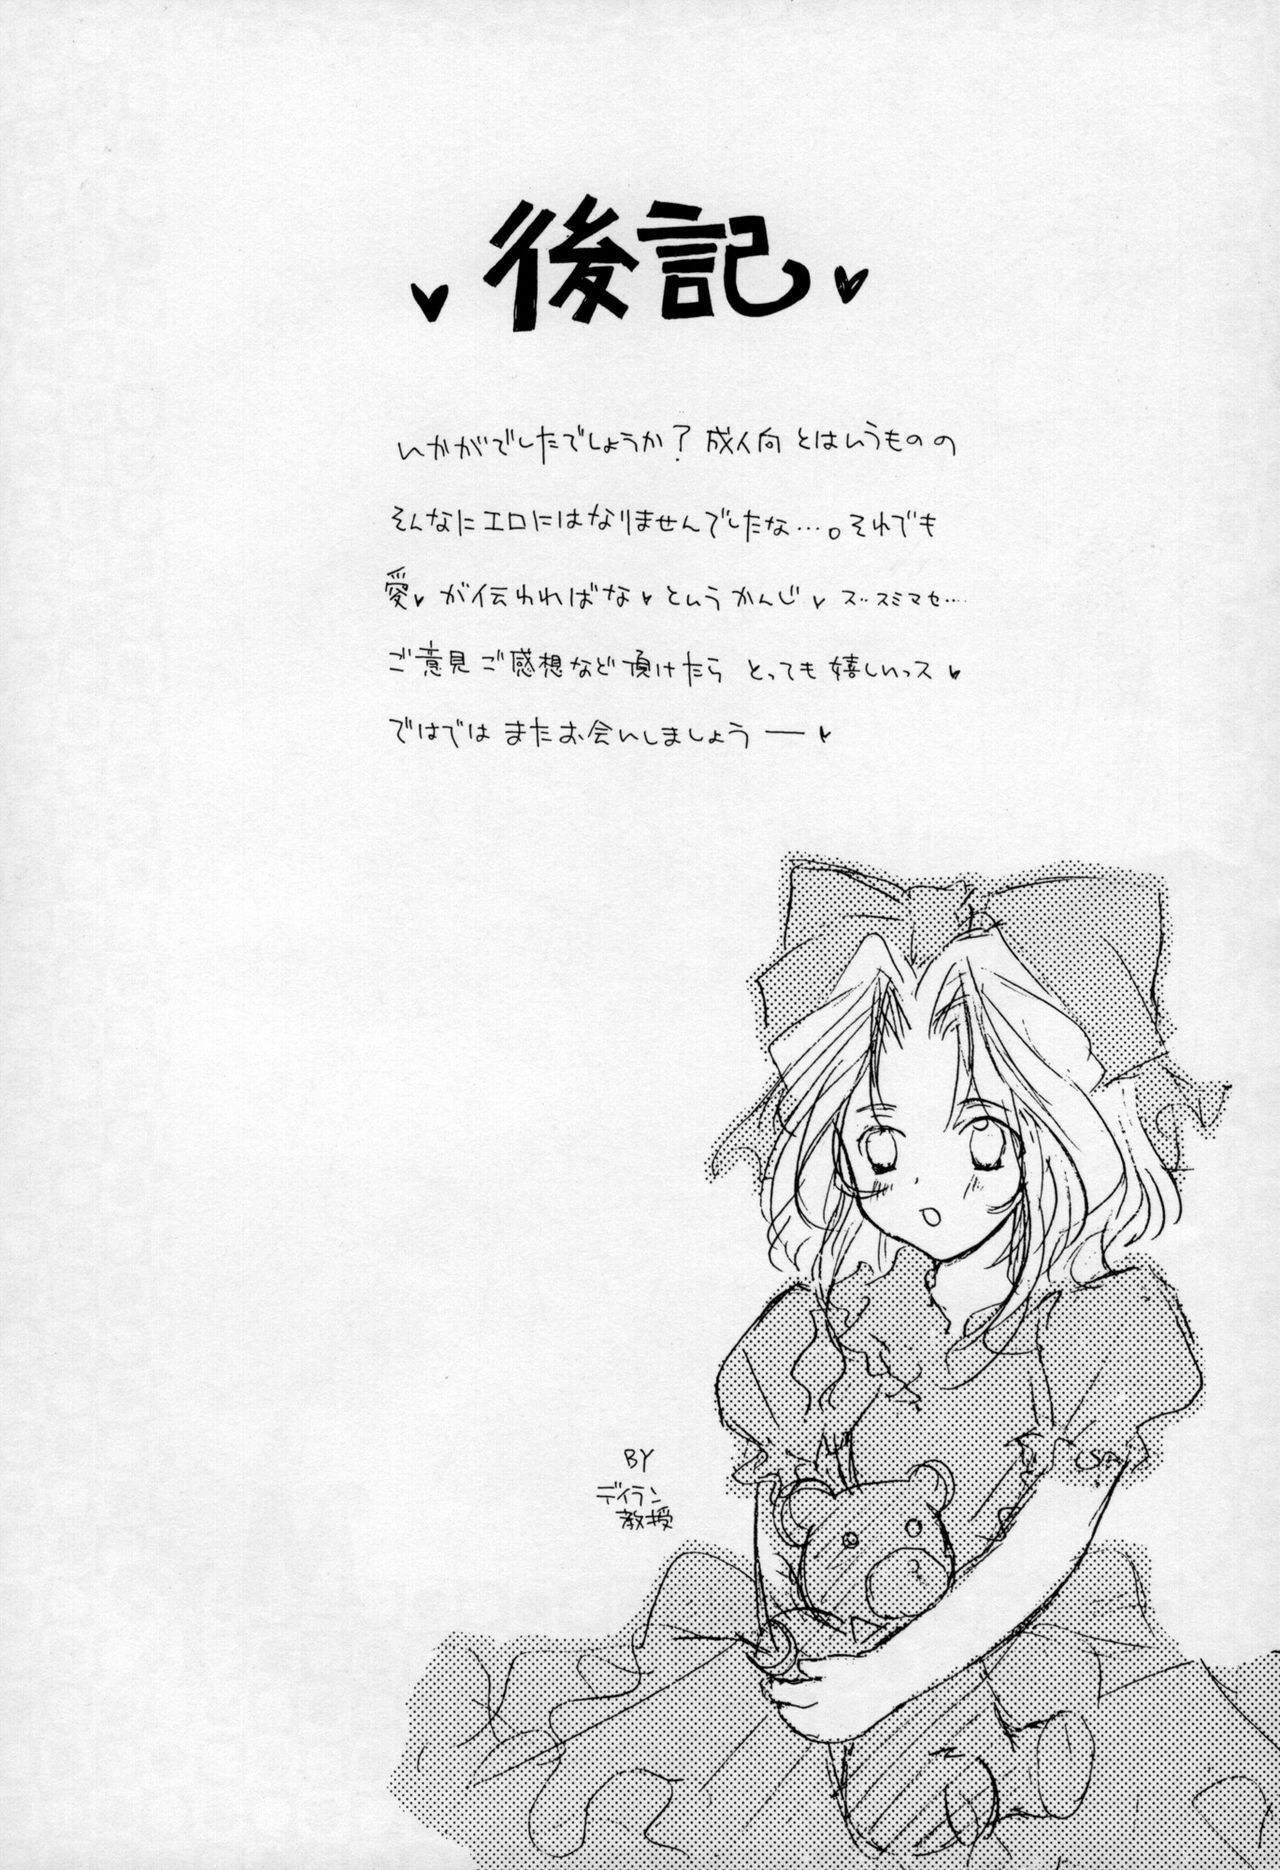 後記
いかがでしたでしょうか？成人向とはいうものの
そんなにエロにはなりませんでしたな…。それでも
愛♥が伝わればな♥というかんじ♥ズ‥スミマセ…
ご意見ご感想など頂けたら とっても嬉しいっス♥
ではでは またお会いしましょうー♥
BY
デイラン
教授